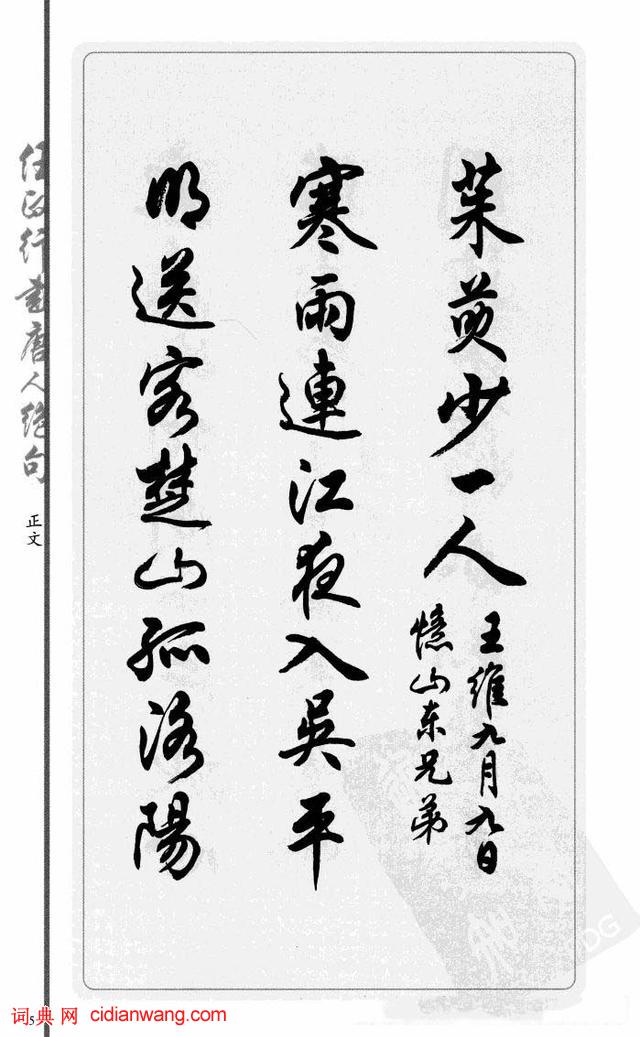 茱萸少一人
王維九月九日
憶山东兄弟
寒雨連江夜入吳平
明送客楚山孤洛陽
任政行書唐人绝句
正文
词典网 cidianwang.com